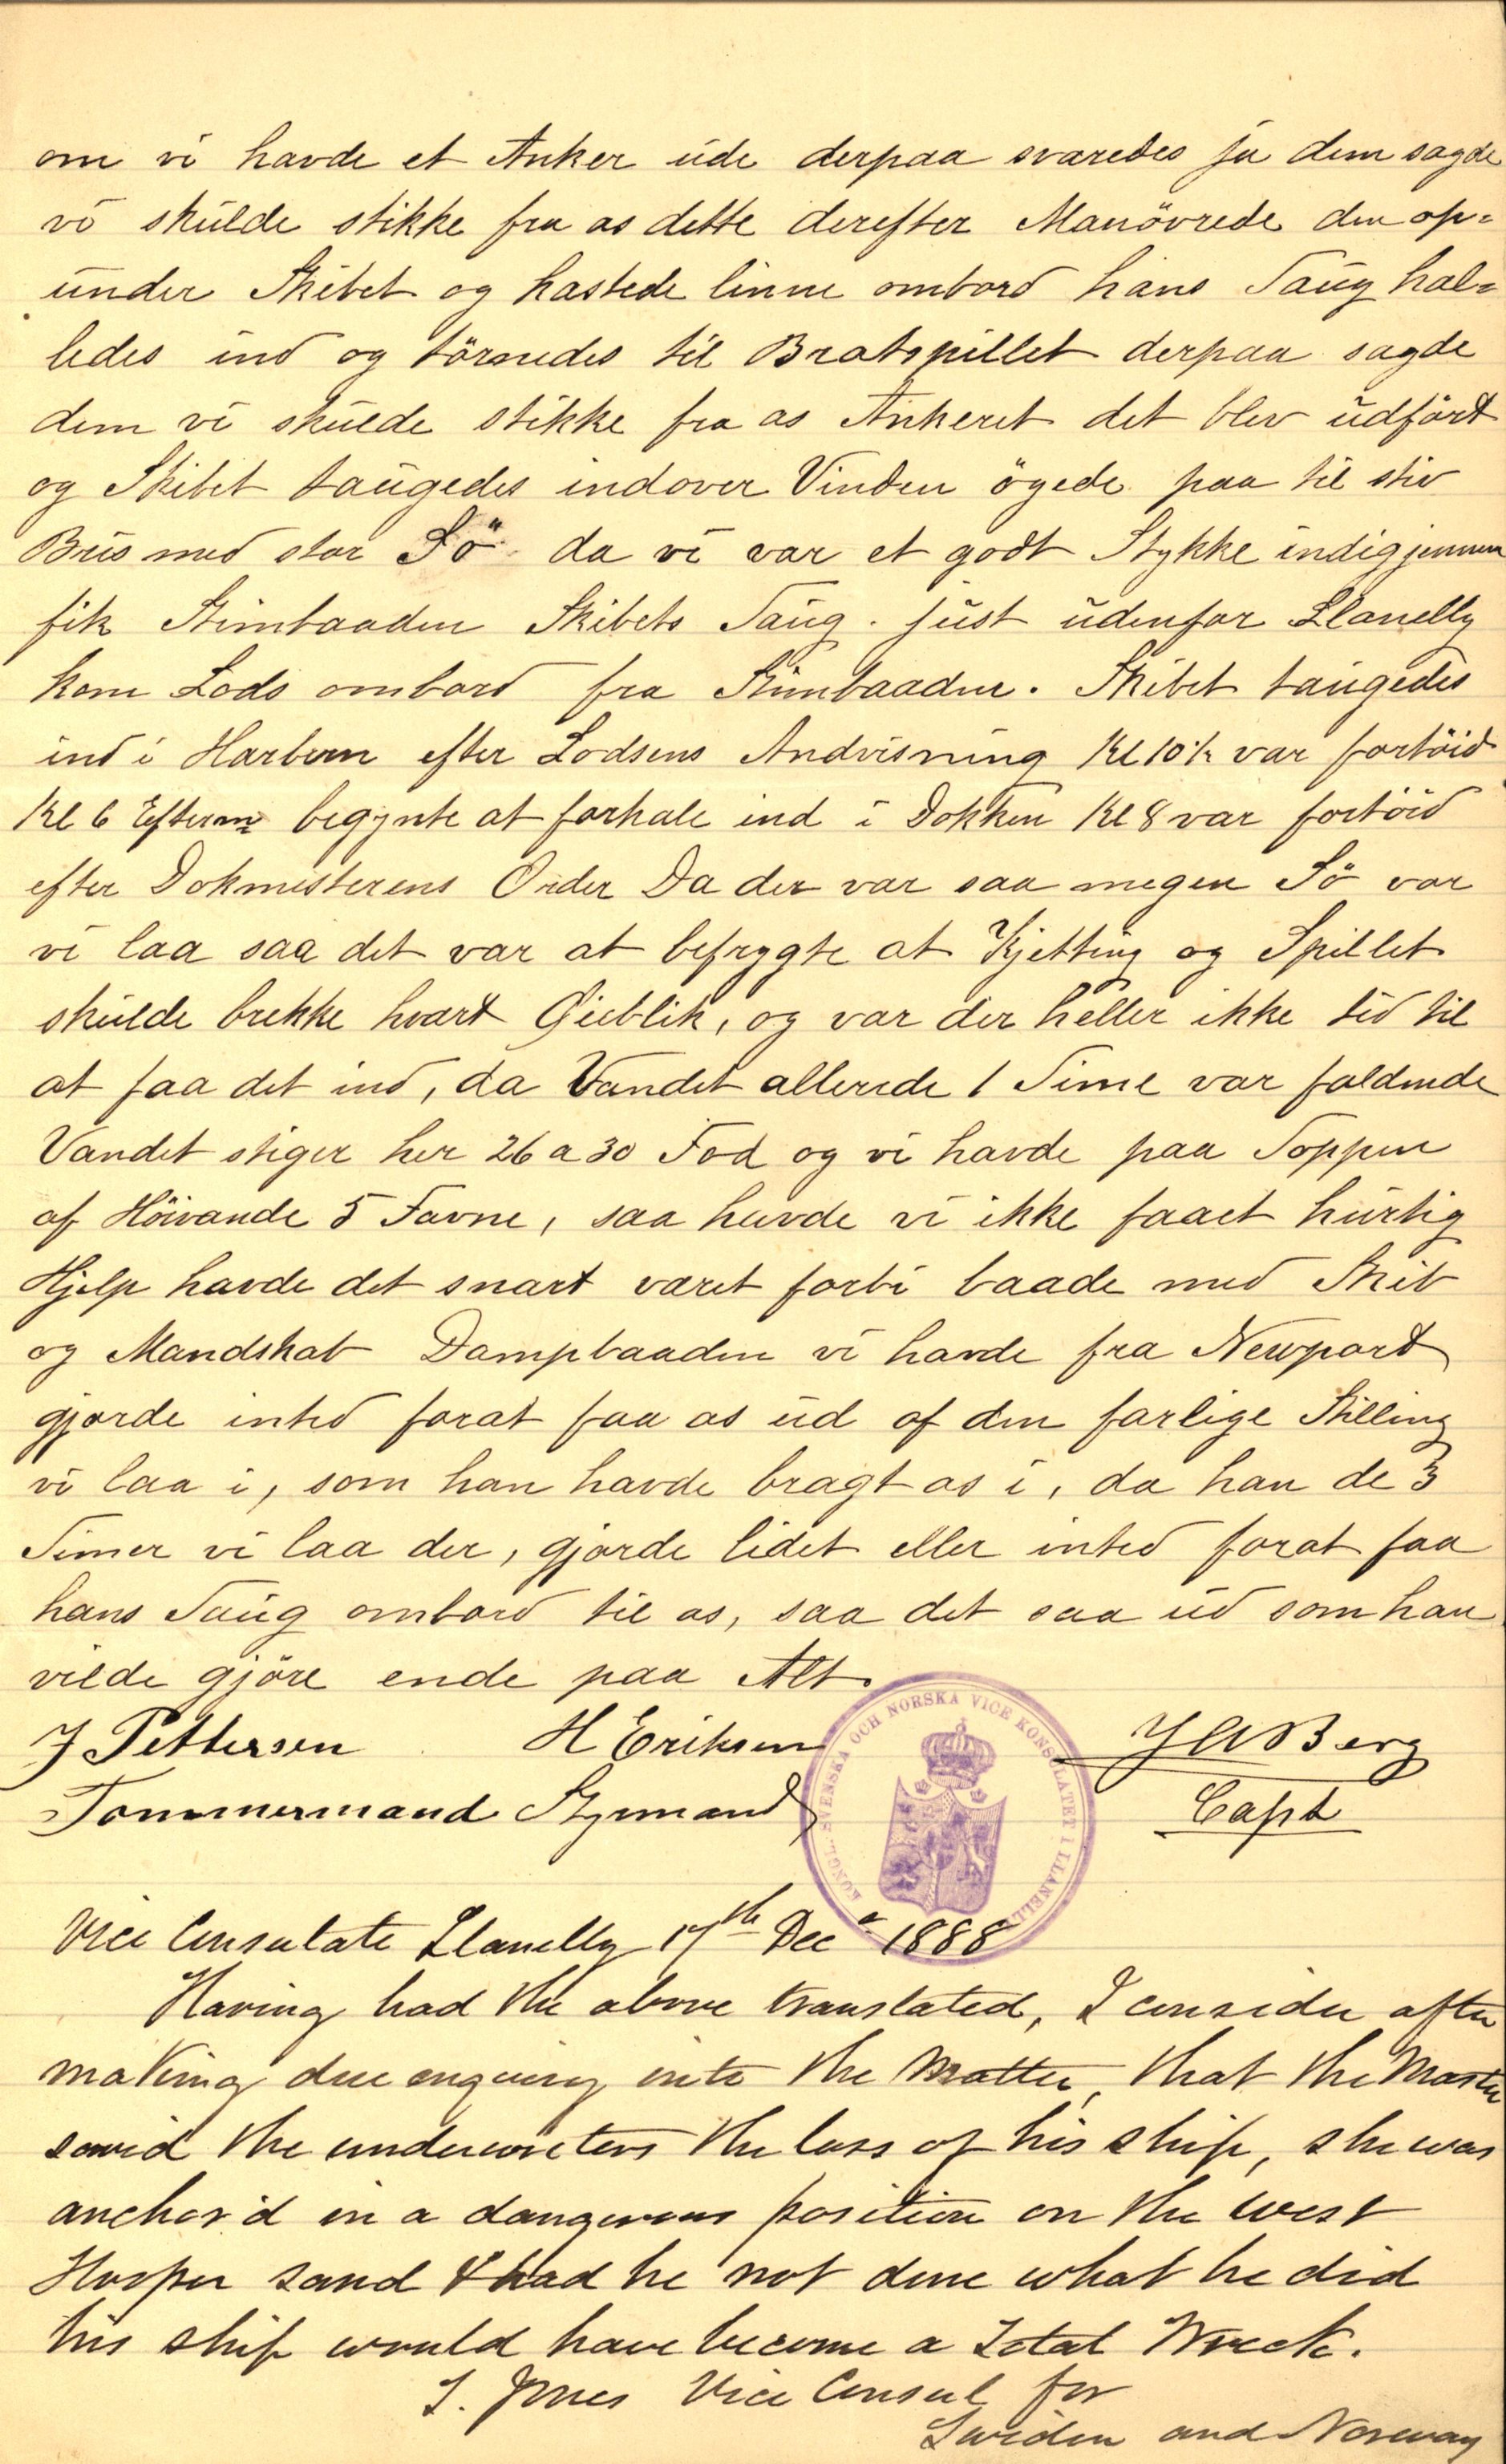 om vi havde et Anker ude derpaa svaredes ja dem sagde
vi skulde stikke fra os dette derefter Manövrede den op=
under Skibet og kastede linne ombord hans Taug hal=
ledes ind og törnedes til Bratspillet derpaa sagde
dem vi skulde stikke fra os Ankeret det blev udfört
og Skibet taugedes indover Vinden ögede paa til stiv
Bris med stor Sö da vi var et godt Stykke indigjennem
fik Stimbaaden Skibets Taug. just udenfor Llanelly
kom Lods ombord fra Stimbaaden. Skibet taugedes
ind i Harbern efter Lodsens Andvisning Kl 10½ var fortöid
Kl 6 Efterm begynte at forhale ind i Dokken Kl 8 var fortöid
efter Dokmesterens Order Da der var saa megen Sö vor
vi laa saa det var at befrygte at Kjetting og Spillet
skulde brekke hvert Öieblik, og var der heller ikke tid til
at faa det ind, da Vandet allerede 1 Time var faldende
Vandet stiger her 26 a 30 Fod og vi havde paa Toppen
af Höivande 5 Favne, saa havde vi ikke faaet hurtig
Hjelp havde det snart været forbi baade med Skib
og Mandskab Dampbaaden vi havde fra Newport
gjorde inted forat faa os ud af den farlige Stilling
vi laa i, som han havde bragt os i, da han de 3
Timer vi laa der, gjorde lidet eller inted forat faa
hans Taug ombord til os, saa det saa ud som han
vilde gjöre ende paa Alt.
J Pettersen H Eriksen J A Berg
Tommermand Styrmand Capt
KONGL. SVENSKA OCH NORSKA VICE KONSULATET I LLANELLY
Vice Consulate Llanelly 17th Decr 1888
Having had the above translated, I consider after
making due enquiry into the Matter, that the Master
saved the underwriters the loss of his ship, she was
anchor'd in a dangerous position on the West
Hooper sand & had he not done what he did
his ship would have become a Total Wreck.
J. Jones Vice Consul for
Sweden and Norway